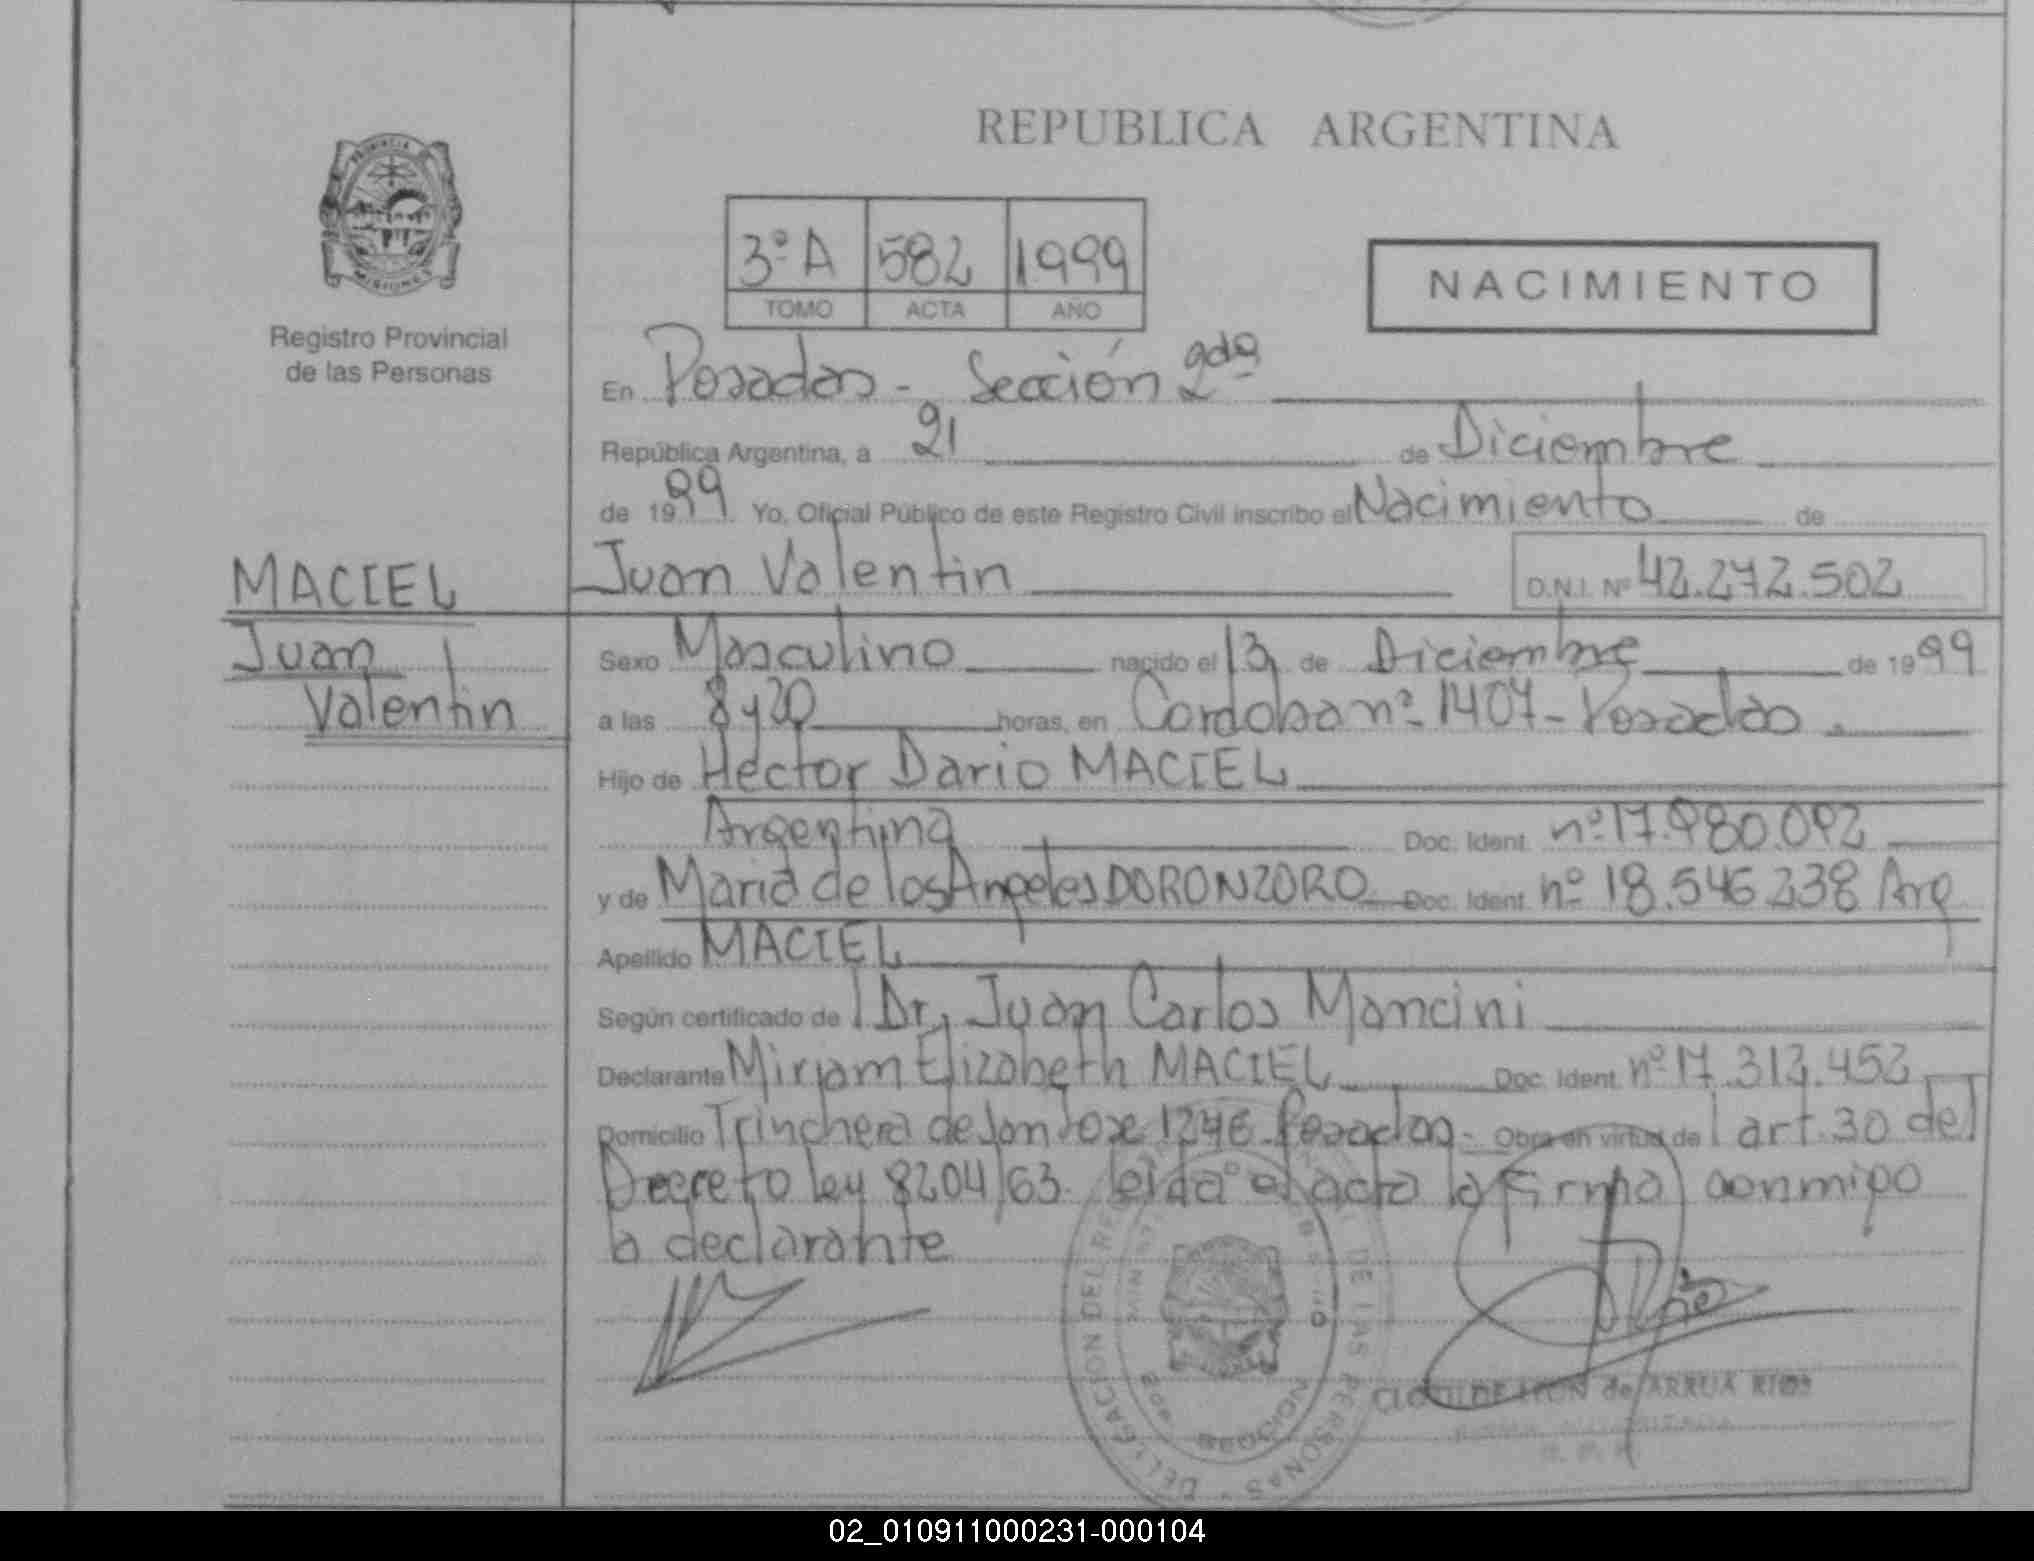 REPUBLICA ARGENTINA
PROVINCIA
MISIONES
Registro Provincial
de las Personas
3º A 582 1999
TOMO ACTA AÑO
NACIMIENTO
En Posadas - Sección 2da
República Argentina, a 21 de Diciembre
de 1999 Yo, Oficial Público de este Registro Civil inscribo el Nacimiento de
Juan Valentin D.N.I. Nº 42.272.502
MACIEL
Juan
Valentin
Sexo Masculino nacido el 13 de Diciembre de 1999
a las 8 y 20 horas, en Cordoba nº 1407 - Posadas.
Hijo de Hector Dario MACIEL
Argentina Doc. Ident. nº 17.980.092
y de Maria de los Angeles DORONZORO Doc. Ident. nº 18.546.238 Arg
Apellido MACIEL
Según certificado de l Dr. Juan Carlos Mancini
Declarante Miriam Elizabeth MACIEL Doc. Ident. nº 17.312.452
Domicilio Trinchera de San Jose 1246 Posadas - Obra en virtud de l art. 30 del
Decreto ley 8204/63. leida el acta la firma conmigo
la declarante
DELEGACION DEL DE LAS PERSONAS
CLOTILDE LEON de ARRUA RIOS
02_010911000231-000104